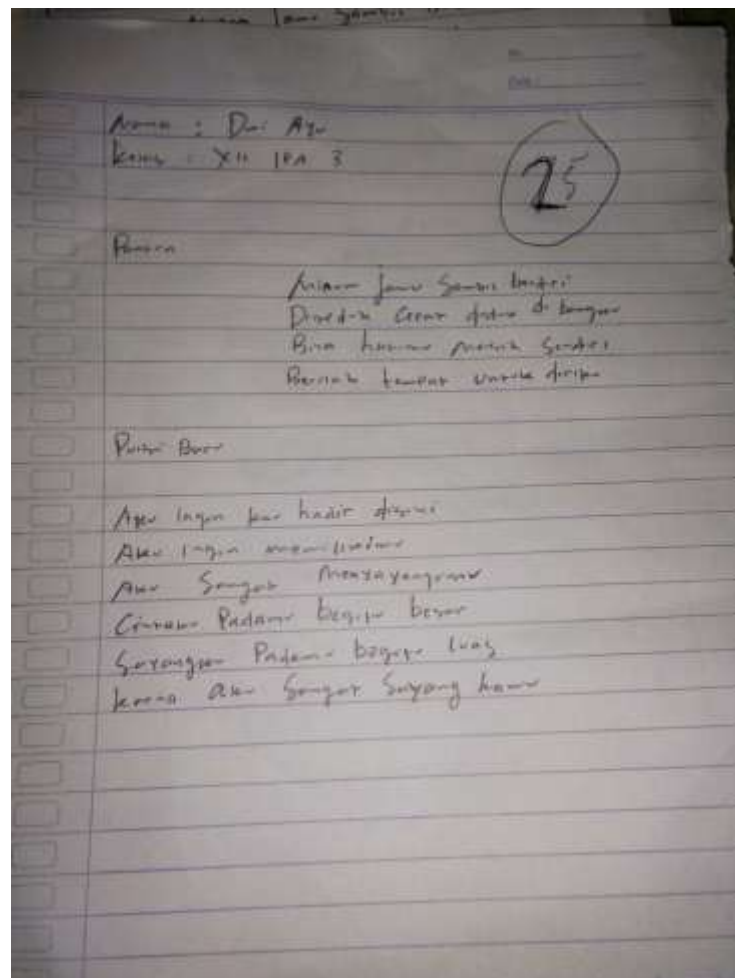 No.
Date :
Nama : Dwi Ayu
Kelas : XII IPA 3
25
Pantun
Minum jamu sambil berdiri
Diseduk cepat
Bila kamu masih sendiri
tempat untuk diriku
Puisi Baru
Aku ingin kau hadir disini
Aku ingin memilikimu
Aku Sangat Menyayangimu
Cintaku Padamu begitu besar
Sayangku Padamu begitu luas
karena aku Sangat Sayang kamu